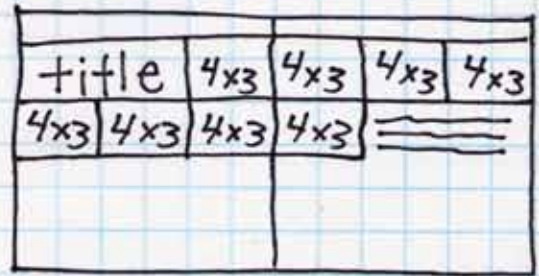 title 4x3 4x3 4x3 4x3
4x3 4x3 4x3 4x3